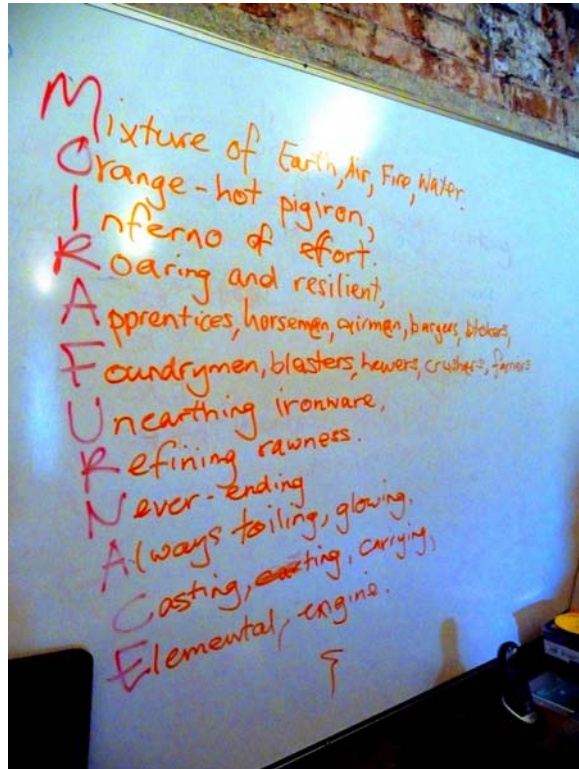 Mixture of Earth, Air, Fire, Water.
Orange-hot pigiron,
Inferno of effort.
Roaring and resilient,
Apprentices, horseman, airman, bargees, stokers,
Foundrymen, blasters, hewers, crushers, farriers
Unearthing ironware,
Refining rawness.
Never-ending
Always toiling, glowing.
Casting, carting, carrying,
Elemental, engine.